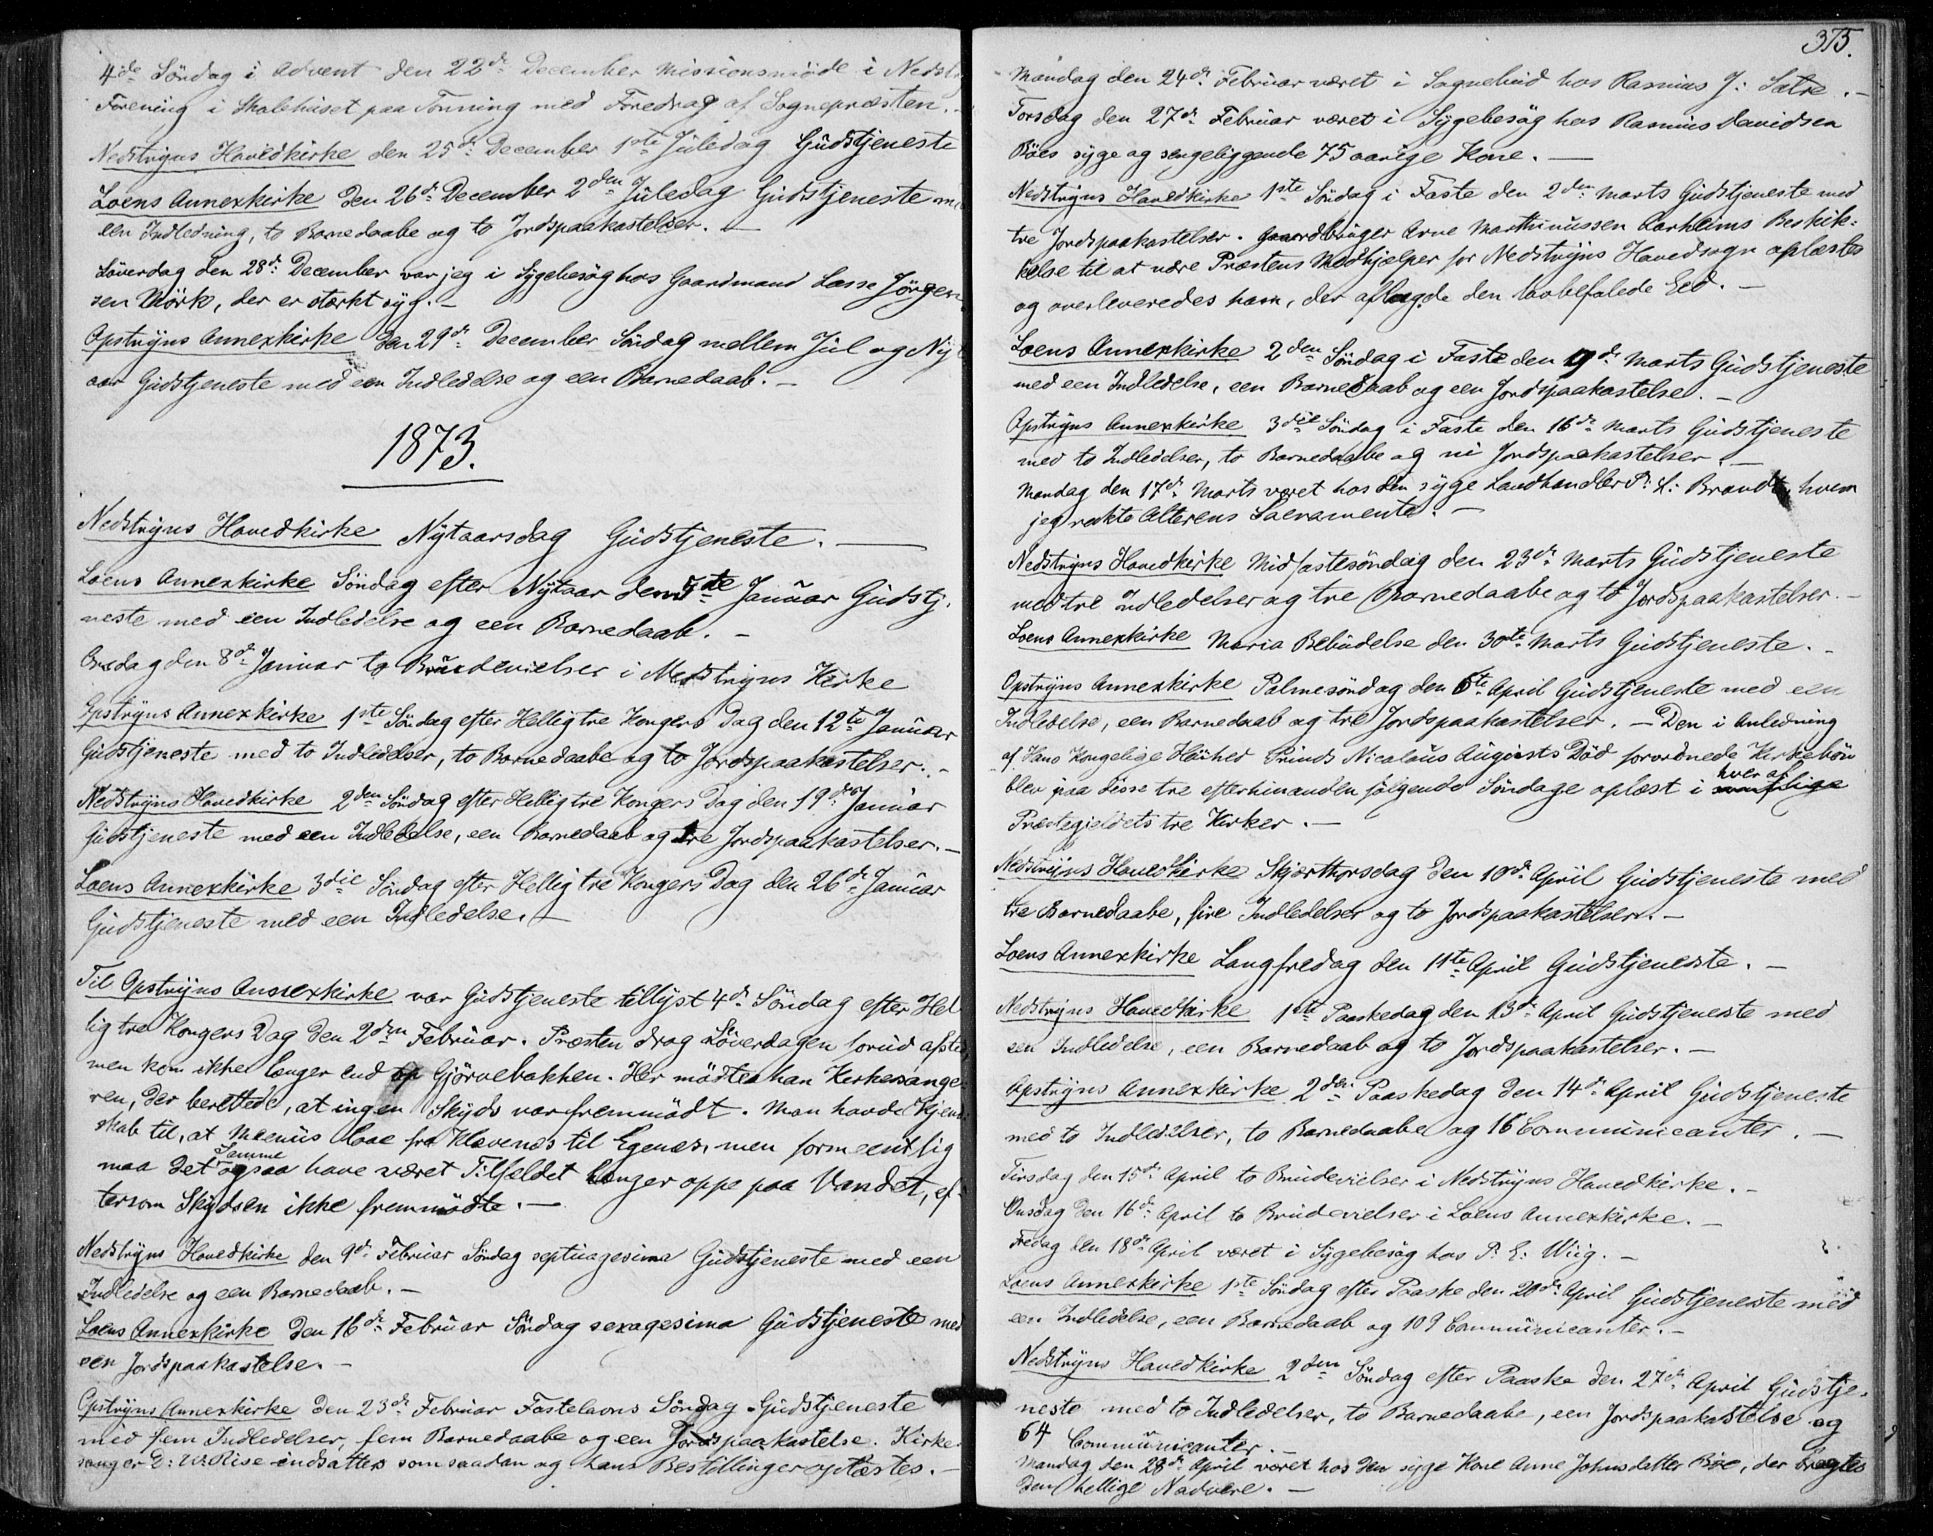 4de Söndag i Advent den 22de December Missionsmöde i Nedst
Forening i Skolehuset paa Tonning med Foredrag af Sognepræsten. -
Nedstryns Hovedkirke den 25de December 1ste Juledag Gudstjeneste
Loens Annexkirke den 26de December 2den Juledag Gudstjeneste me
een Indledning, to Barnedaabe og to Jordspaakastelser. -
Löverdag den 28de December var jeg i Sygebesög hos Gaardmand Lasse Jörgen
sen Mörk, der er stærkt syg. -
Opstryns Annexkirke den 29de December Söndag mellem Jul og Nyt
aar Gudstjeneste med een Indledelse og een Barnedaab. -
1873.
Nedstryns Hovedkirke Nytaarsdag Gudstjeneste. -
Loens Annexkirke Söndag efter Nytaar den 5te Januar Gudstj.
neste med een Indledelse og een Barnedaab. -
Onsdag den 8de Januar to Brudevielser i Nedstryns Kirke
Opstryns Annexkirke 1ste Söndag efter Hellig tre Kongers Dag den 12te Januar
Gudstjeneste med to Indledelser, to Barnedaabe og to Jordspaakastelser. -
Nedstryns Hovedkirke 2den Söndag efter Hellig tre Kongers Dag den 19de Januar
Gudstjeneste med een Indledelse, een Barnedaab og tre Jordspaakastelser. -
Loens Annexkirke 3die Söndag efter Hellig tre Kongers Dag den 26de Januar
Gudstjeneste med een Indledelse. -
Til Opstryns Annexkirke var Gudstjeneste tillyst 4de Söndag efter Hel
lig tre Kongers Dag den 2den Februar. Præsten drog Löverdagen forud afsted,
men kom ikke længer end op Gjörvebakken. Her mödtes han Kirkesange-
ren, der berettede, at ingen Skyds var fremmödt. Man havde Kjend
skab til, at Meenüs laae fra Hævenæs til Egenæs, men formeentlig
maa det Samme ogsaa have været Tilfældet længer oppe paa Vandet, ef-
tersom Skydsen ikke fremmödte. -
Nedstryns Hovedkirke den 9de Februar Söndag septuagesima Gudstjeneste med een
Indledelse og een Barnedaab. -
Loens Annexkirke den 16de Februar Söndag sexagesima Gudstjeneste med
een Jordspaakastelse. -
Opstryns Annexkirke den 23de Februar Fastelavns Söndag Gudstjeneste
med fem Indledelser, fem Barnedaabe og een Jordspaakastelse. Kirke-
sanger indsattes som saadan og hans Bestillinger oplæstes. -
375.
Mandag den 24de Februar været i Sognebud hos Rasmus J: Sætre. -
Torsdag den 27de Februar været i Sygebesög hos Rasmus Davidsen
Böes syge og sengeliggende 75 aarige Kone. -
Nedstryns Hovedkirke 1ste Söndag i Faste den 2den Marts Gudstjeneste med
tre Jordspaakastelser. Gaardbruger Arne Marthinussen Aarheims Beskik-
kelse til at være Præstens Medhjelper for Nedstryns Hovedsogn oplæstes
og overleveredes ham, der aflagde den lovbefalede Eed. -
Loens Annexkirke 2den Söndag i Faste den 9de Marts Gudstjeneste
med een Indledelse, een Barnedaab og een Jordspaakastelse. -
Opstryns Annexkirke 3die Söndag i Faste den 16de Marts Gudstjeneste
med to Indledelser, to Barnedaabe og ni Jordspaakastelser. -
Mandag den 17de Marts været hos den syge Landhandler P: L: Brandt, hvem
jeg rakte Alterens Sacramente. -
Nedstryns Hovedkirke Midfastesöndag den 23de Marts Gudstjeneste
med tre Indledelser og tre Barnedaabe og to Jordspaakastelser. -
Loens Annexkirke Maria Bebudelse den 30te Marts Gudstjeneste. -
Opstryns Annexkirke Palmesöndag den 6te April Gudstjeneste med een
Indledelse, een Barnedaab og tre Jordspaakastelser. - Den i Anledning
af Hans Kongelige Höihed Prinds Nicolaus Augusts Död forordnede Kirkebön
blev paa disse tre efterhinanden fölgende Söndage oplæst i hver af
Præstegjeldets tre Kirker. -
Nedstryns Hovedkirke Skjærthorsdag den 10de April Gudstjeneste med
tre Barnedaabe, fire Indledelser og to Jordspaakastelser. -
Loens Annexkirke Langfredag den 11te April Gudstjeneste. -
Nedstryns Hovedkirke 1ste Paaskedag den 13de April Gudstjeneste med
een Indledelse, een Barnedaab og to Jordspaakastelser. -
Opstryns Annexkirke 2den Paaskedag den 14de April Gudstjeneste
med to Indledelser, to Barnedaabe og 16 Communicanter. -
Tirsdag den 15de April to Brudevielser i Nedstryns Hovedkirke. -
Onsdag den 16de April to Brudevielser i Loens Annexkirke. -
Fredag den 18de April været i Sygebesög hos P. E: Wiig. -
Loens Annexkirke 1ste Söndag efter Paaske den 20de April Gudstjeneste med
een Indledelse, een Barnedaab og 109 Communicanter. -
Nedstryns Hovedkirke 2den Söndag efter Paaske den 27de April Gudstje-
neste med to Indledelser, to Barnedaabe, een Jordspaakastelse og
64 Communicanter. -
Mandag den 28de April været hos den syge Kone Anne Johnsdatter Böe, der bragtes
den hellige Nadvere. -